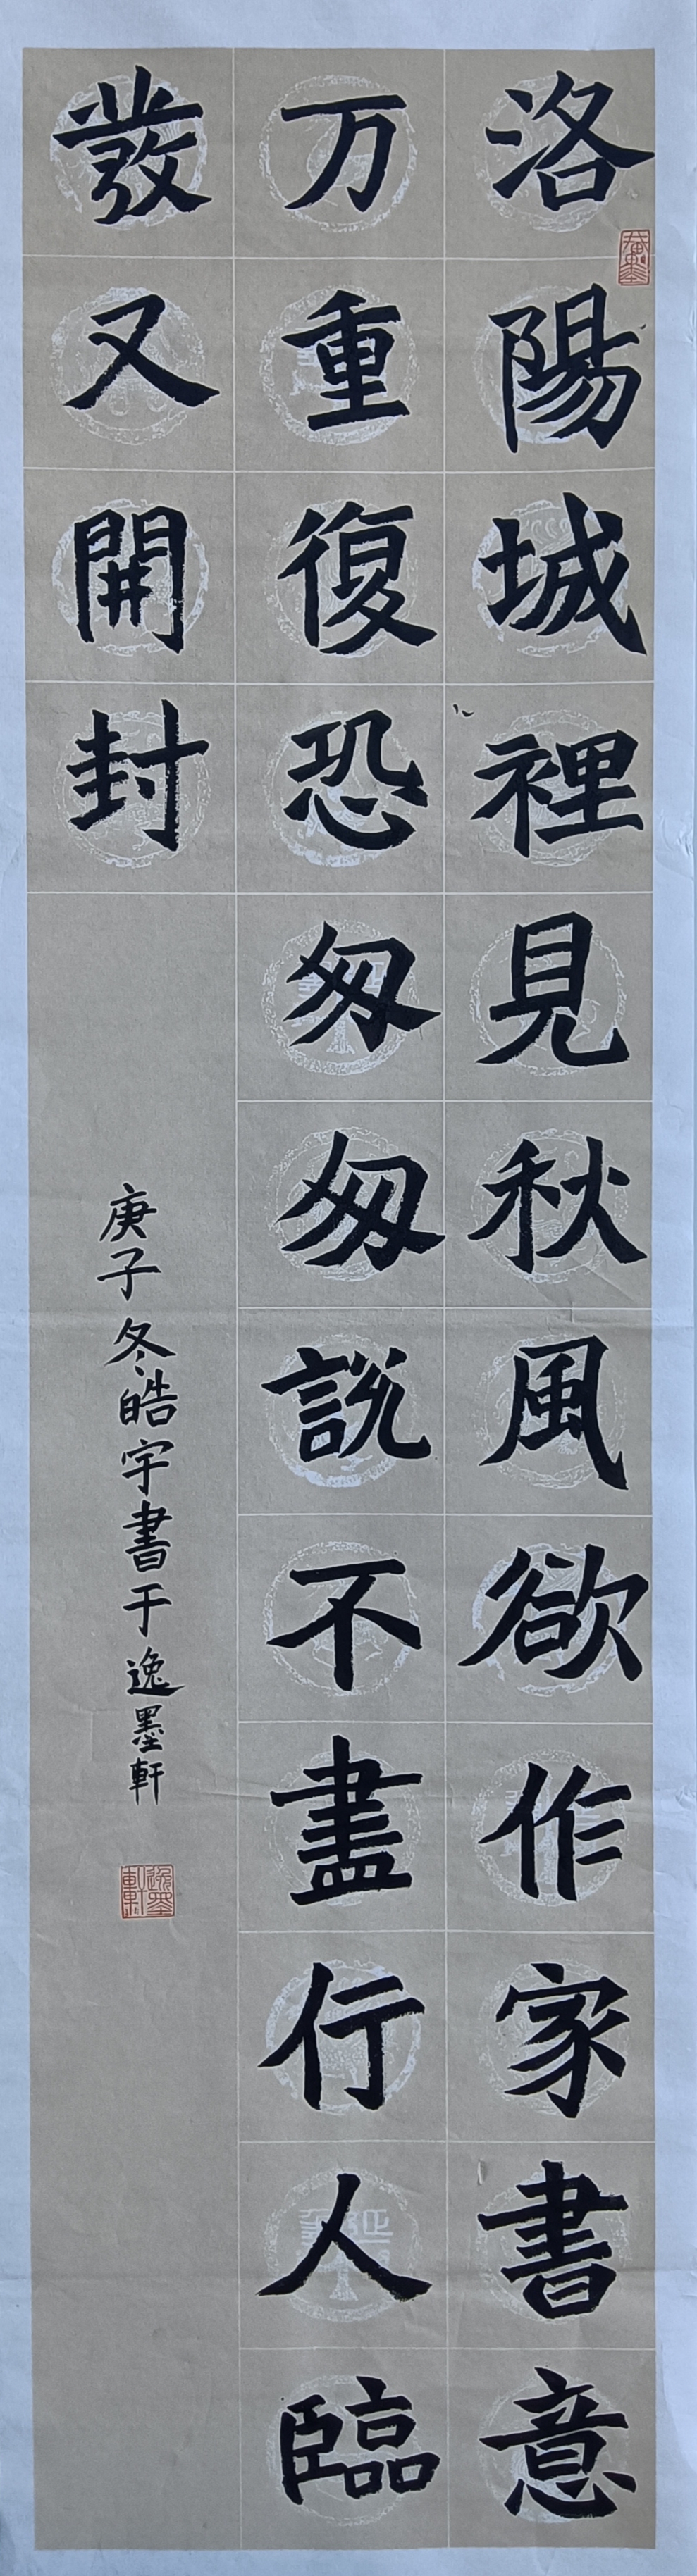 洛陽城裡見秋風欲作家書意
万重復恐匆匆說不盡行人臨
發又開封
庚子冬皓宇書于逸墨軒
逸墨軒